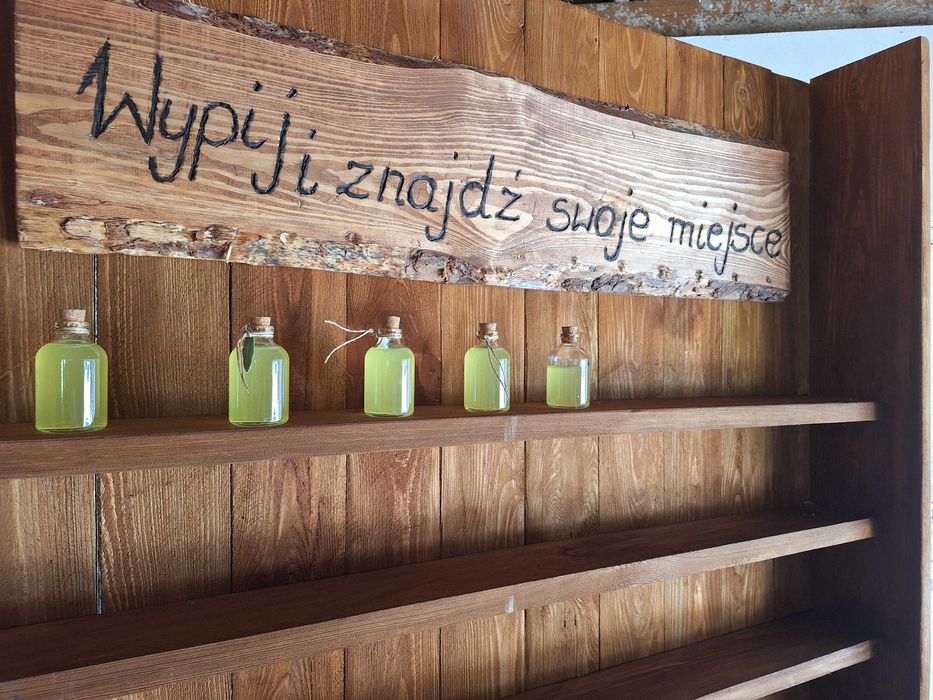 Wypij i znajdź swoje miejsce